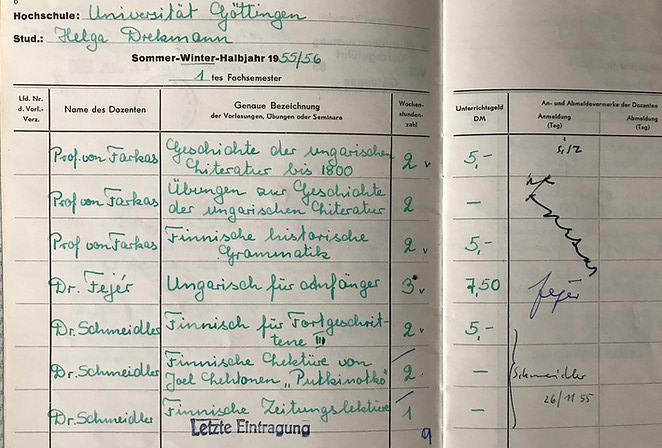 6
Hochschule: Universität Göttingen
Stud.: Helga Drekmann
Sommer-Winter-Halbjahr 1955/56
1 tes Fachsemester
Lfd. Nr. d. Vorl.-Verz. Name des Dozenten Genaue Bezeichnung der Vorlesungen, Übungen oder Seminare Wochen-stunden-zahl Unterrichtsgeld DM An- und Abmeldevermerke der Dozenten
Anmeldung (Tag) Abmeldung (Tag)
Prof. von Farkas Geschichte der ungarischen Literatur bis 1800 2 5,-
Prof von Farkas Übungen zur Geschichte der ungarischen Literatur 2 —
Prof von Farkas Finnische historische Grammatik 2 5,-
Dr. Fejér Ungarisch für Anfänger 3 7,50 Fejér
Dr. Schmeidler Finnisch für Fortgeschrittene III 2 5,-
Dr. Schmeidler Finnische Lektüre von Joel Lehtonen „Putkinotko" 2 — Schmeidler
Dr. Schmeidler Finnische Zeitungslektüre 1 — 26/11 55
Letzte Eintragung
9